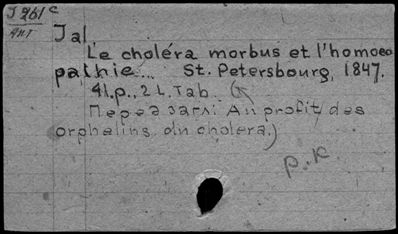 J 261 c
Ант
Jal
Le choléra morbus et l'homoeo
pathie... St. Petersbourg, 1847.
41.p., 2 L. Tab.
Перед загл: Au profit des
orphelins du cholera.)
р.к.